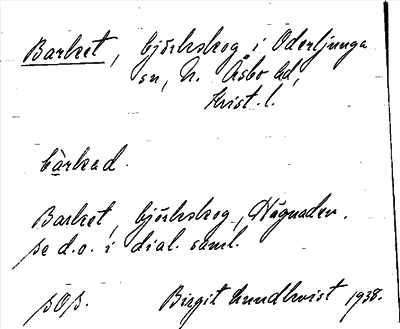 Barket, björkskog i Oderljunga
sn, N. Åsbo hd,
Krist. l.
bàrkad.
Barket, björkskog, Hägnaden.
se d.o. i dial. saml.
sOs. Birgit Lundkvist 1938.